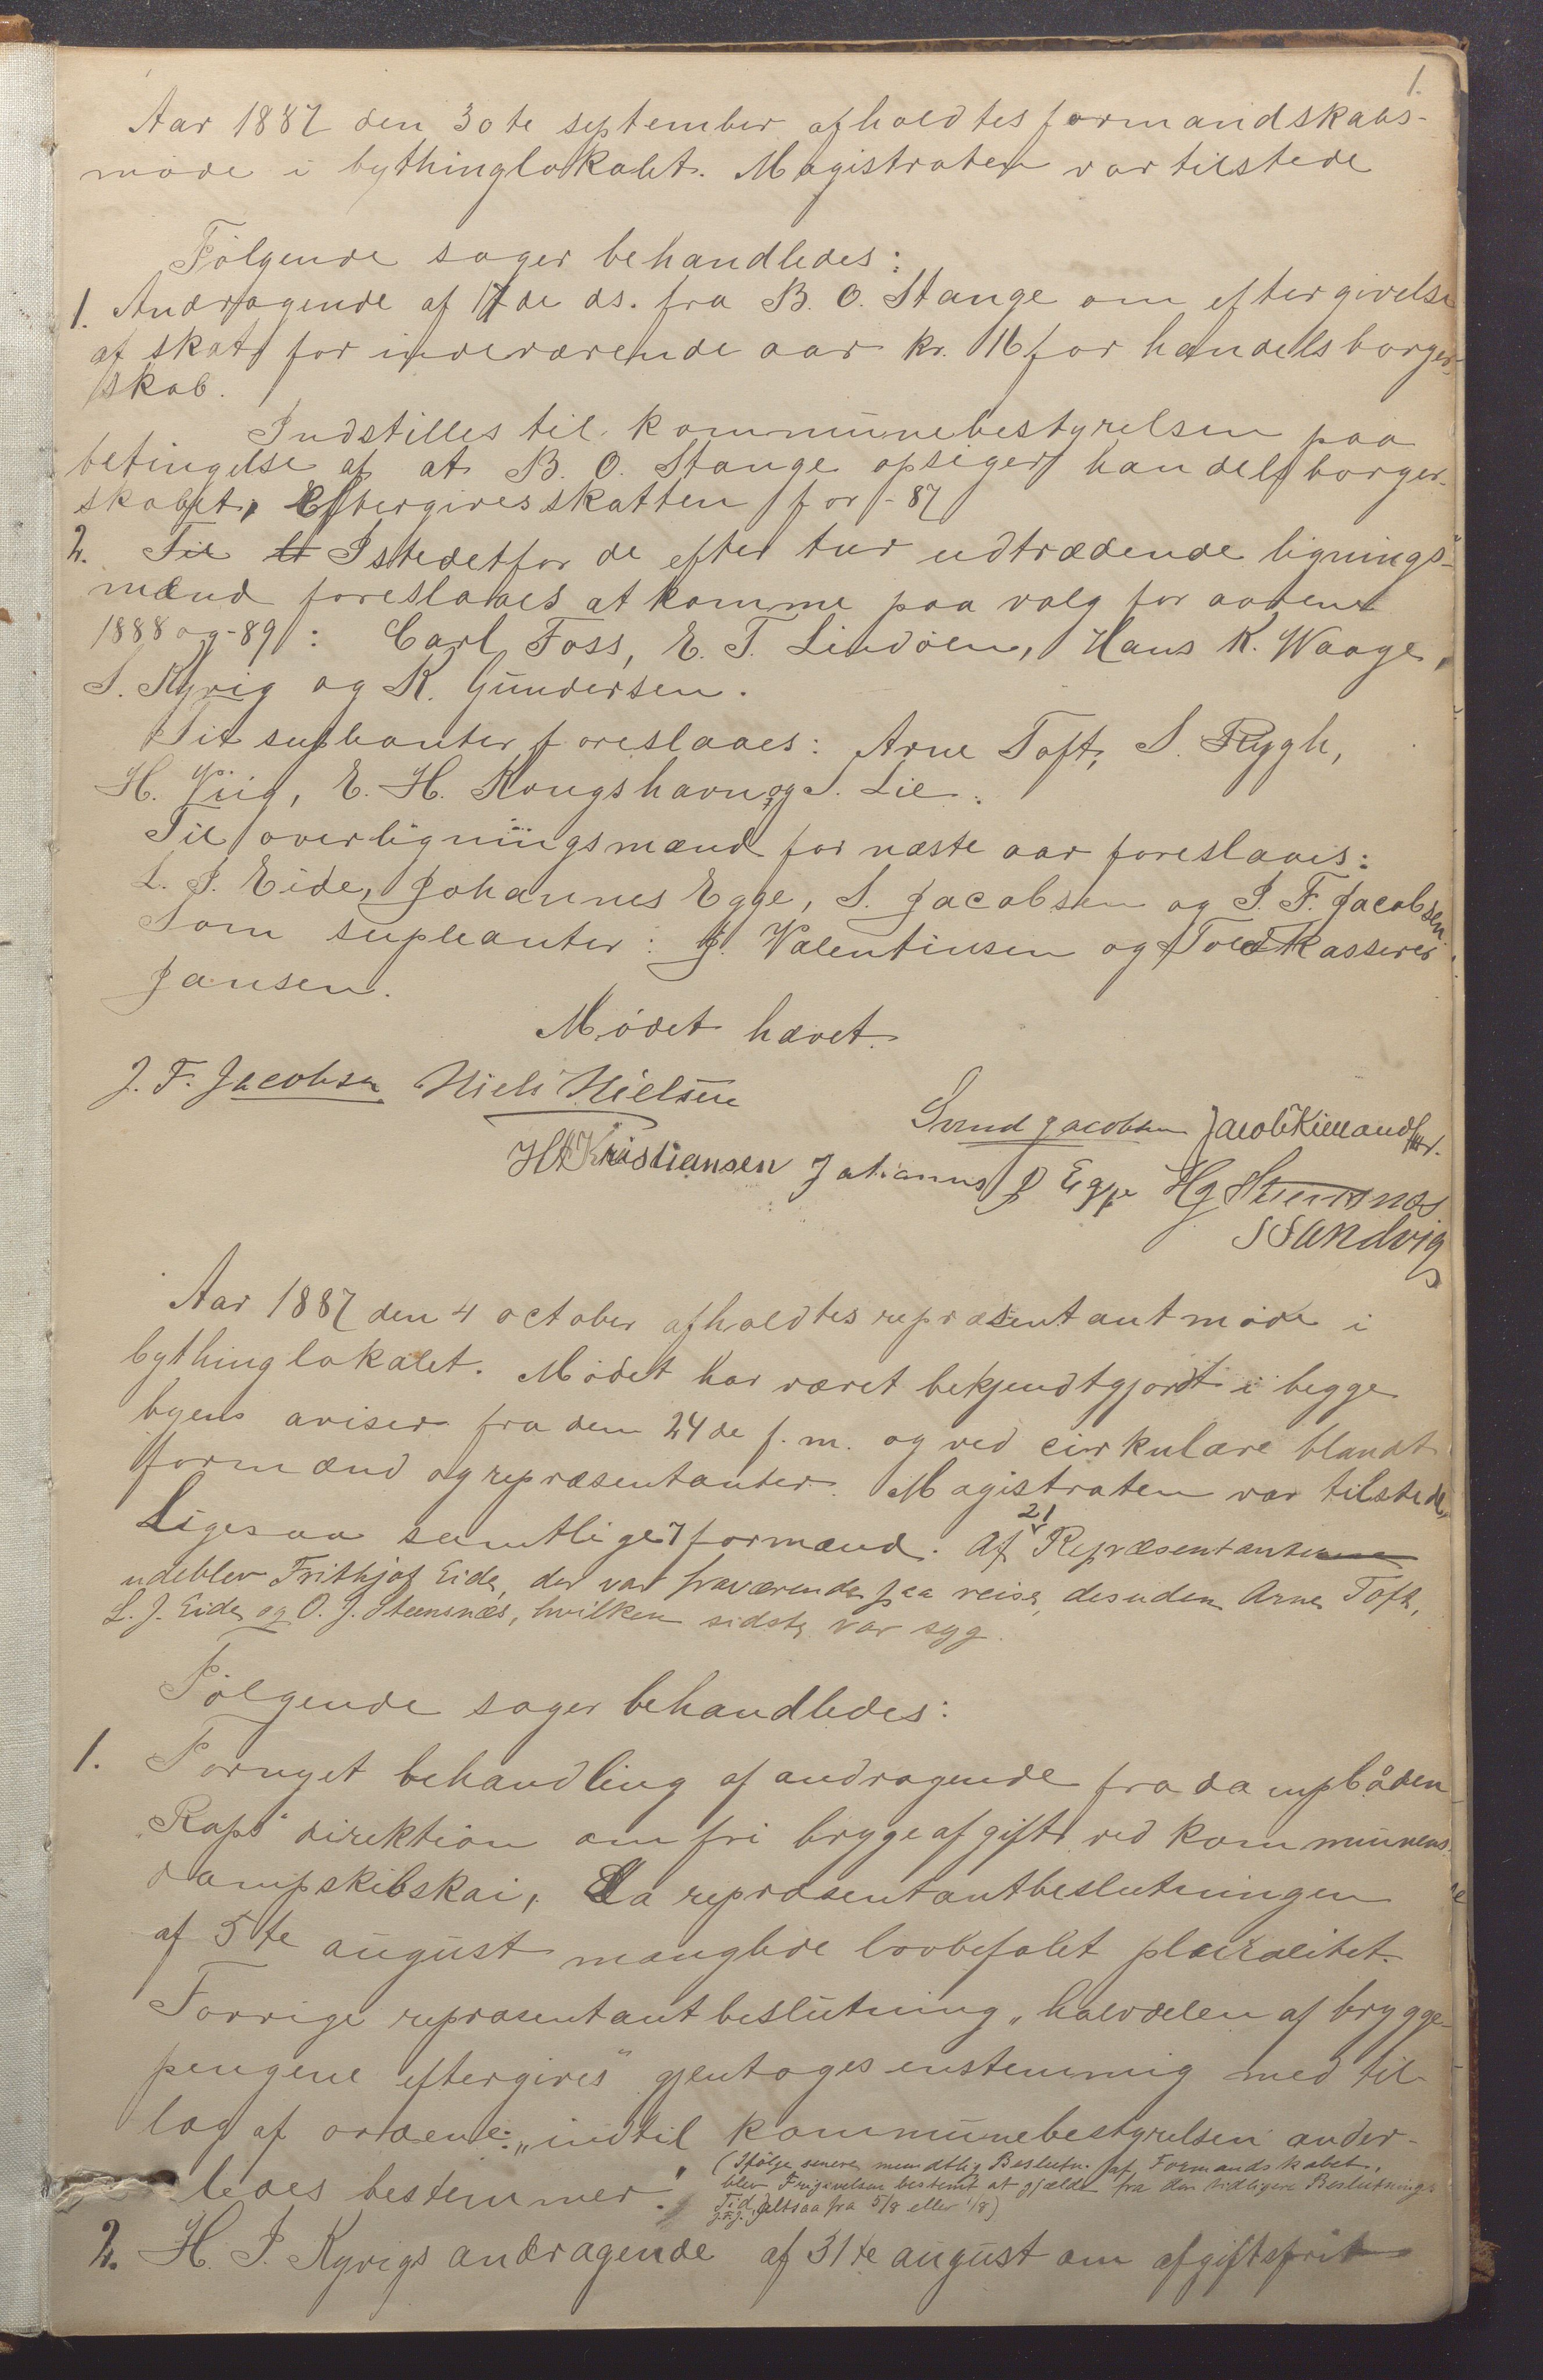 1.
Aar 1887 den 30te september afholdtes formandskabs-
møde i bythinglokalet. Magistraten var tilstede
Følgende sager behandledes:
1. Andragende af 17de ds. fra B. O. Stange om eftergivelse
af skat for indeværende aar kr. 16 for handelsborger-
skab.
Indstilles til kommunebestyrelsen paa
betingelse af at B. O. Stange opsiger handelsborger-
skabet, Eftergives skatten for -87
2. Til Istedetfor de efter tur udtrædende lignings-
mænd foreslaaes at komme paa valg for aarene
1888 og -89: Carl Foss, E. T. Lindøen, Hans K. Waage,
S. Kyvig og K. Gundersen.
Til supleanter foreslaaes: Arne Toft, S. Rygh,
H. Viig, E. H. Kongshavn og S. Lie.
Til overligningsmænd for næste aar foreslaaes:
L. J. Eide, Johannes Egge, S. Jacobsen og J. F. Jacobsen.
Som supleanter: J. Valentinsen og Toldkasserer
Jansen.
Mødet hævet.
J. F. Jacobsen Niels Nielsen
Svend Jacobsen Jacob Kielland
H Kristiansen Johannes J Egge
S Sandvig
Aar 1887 den 4 october afholdtes repræsentantmøde i
bythinglokalet. Mødet har været bekjendtgjordt i begge
byens aviser fra den 24de f. m. og ved cirkulære blandt
formænd og repræsentanter. Magistraten var tilstede,
Ligesaa samtlige 7 formænd. Af 21 Repræsentanterne
udeblev Frithjof Eide, der var fraværende paa reise, desuden Arne Toft,
L. J. Eide og O. J. Steensnæs, hvilken sidste var syg.
Følgende sager behandledes:
1. Fornyet behandling af andragende fra dampbåden
"Raps" direktion om fri bryggeafgift ved kommunens
dampskibskai, Da repræsentantbeslutningen
af 5te august manglede lovbefalet pluralitet.
Forrige repræsentantbeslutning "halvdelen af brygge-
pengene eftergives" gjentoges enstemmig med til-
læg af ordene: "indtil kommunebestyrelsen ander-
ledes bestemmer."
(Ifølge senere mundtlig Beslutn. af Formandskabet,
blev Frigivelsen bestemt at gjælde fra den tidligere Beslutnings
Tid, altsaa fra 5/8 eller 1/8)
J.F.J.
2. H. J. Kyvigs andragende af 31te august om afgiftsfrit